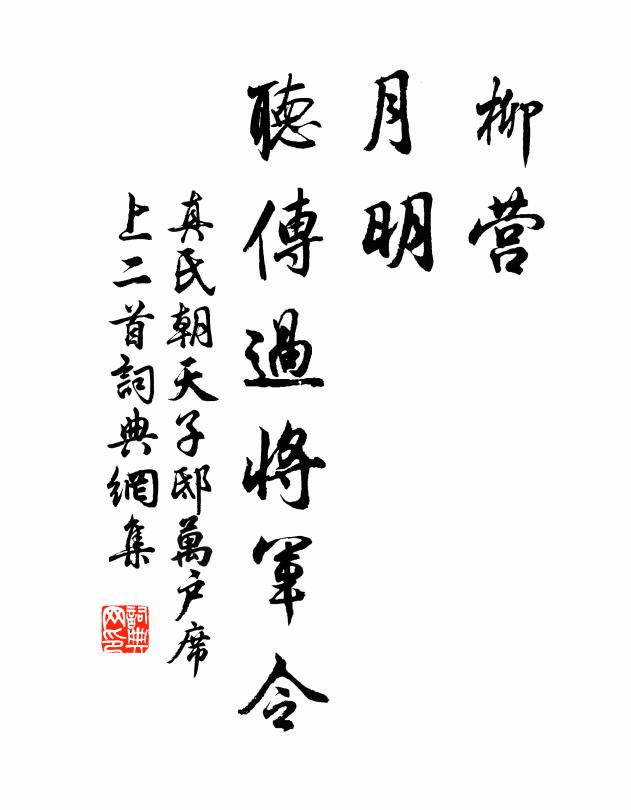 柳營
月明
聽傳過將軍令
真氏朝天子邸萬戶席
上二首詞典網集
詞典
网印